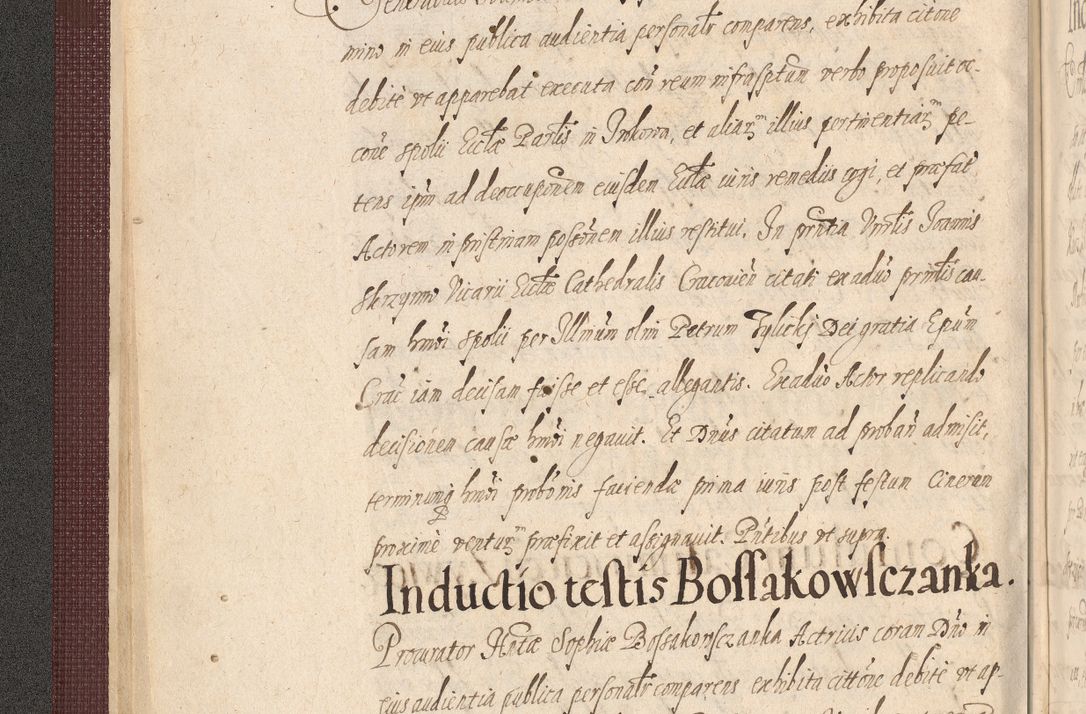 mino in eius publica audientia personalr comparens, exhibita citone
debite vt apparebat executa con reum infrasptum verbo proposuit oc-
cone spolii Eccłæ Parlis in Inkowa, et aliarm illius pertinentiarm pe-
tens ipm ad deoccuponem eiusdem Ecclæ iuris remediis cogi, et præfat
Actorem in pristinam possonem illius restitui. In prntia Vnrlis Joannis
Skrzynno Vicarii Ecclæ Cathedralis Cracovien citati ex aduo prinlis cau-
sam hmoi spolii per Illmum olm Petrum Tylicki Dei gratia Epum
Crac iam decisam fuisse et esse allegantis. Ex aduo Actor replicando
decisionem causæ hmoi negauit. Et Dnus citatum ad proban admisit,
terminumq hmoi probonis faciendæ prima iuris post festum Cinerum
proxime venturm præfixit et assignauit. Pntibus vt supra.
Inductio testis Bossakowsczanka.
Procurator Hntæ Sophiæ Bossakowsczanka Actricis coram Dno in
eius audientia publica personalr comparens exhibita cittone debite vt ap-